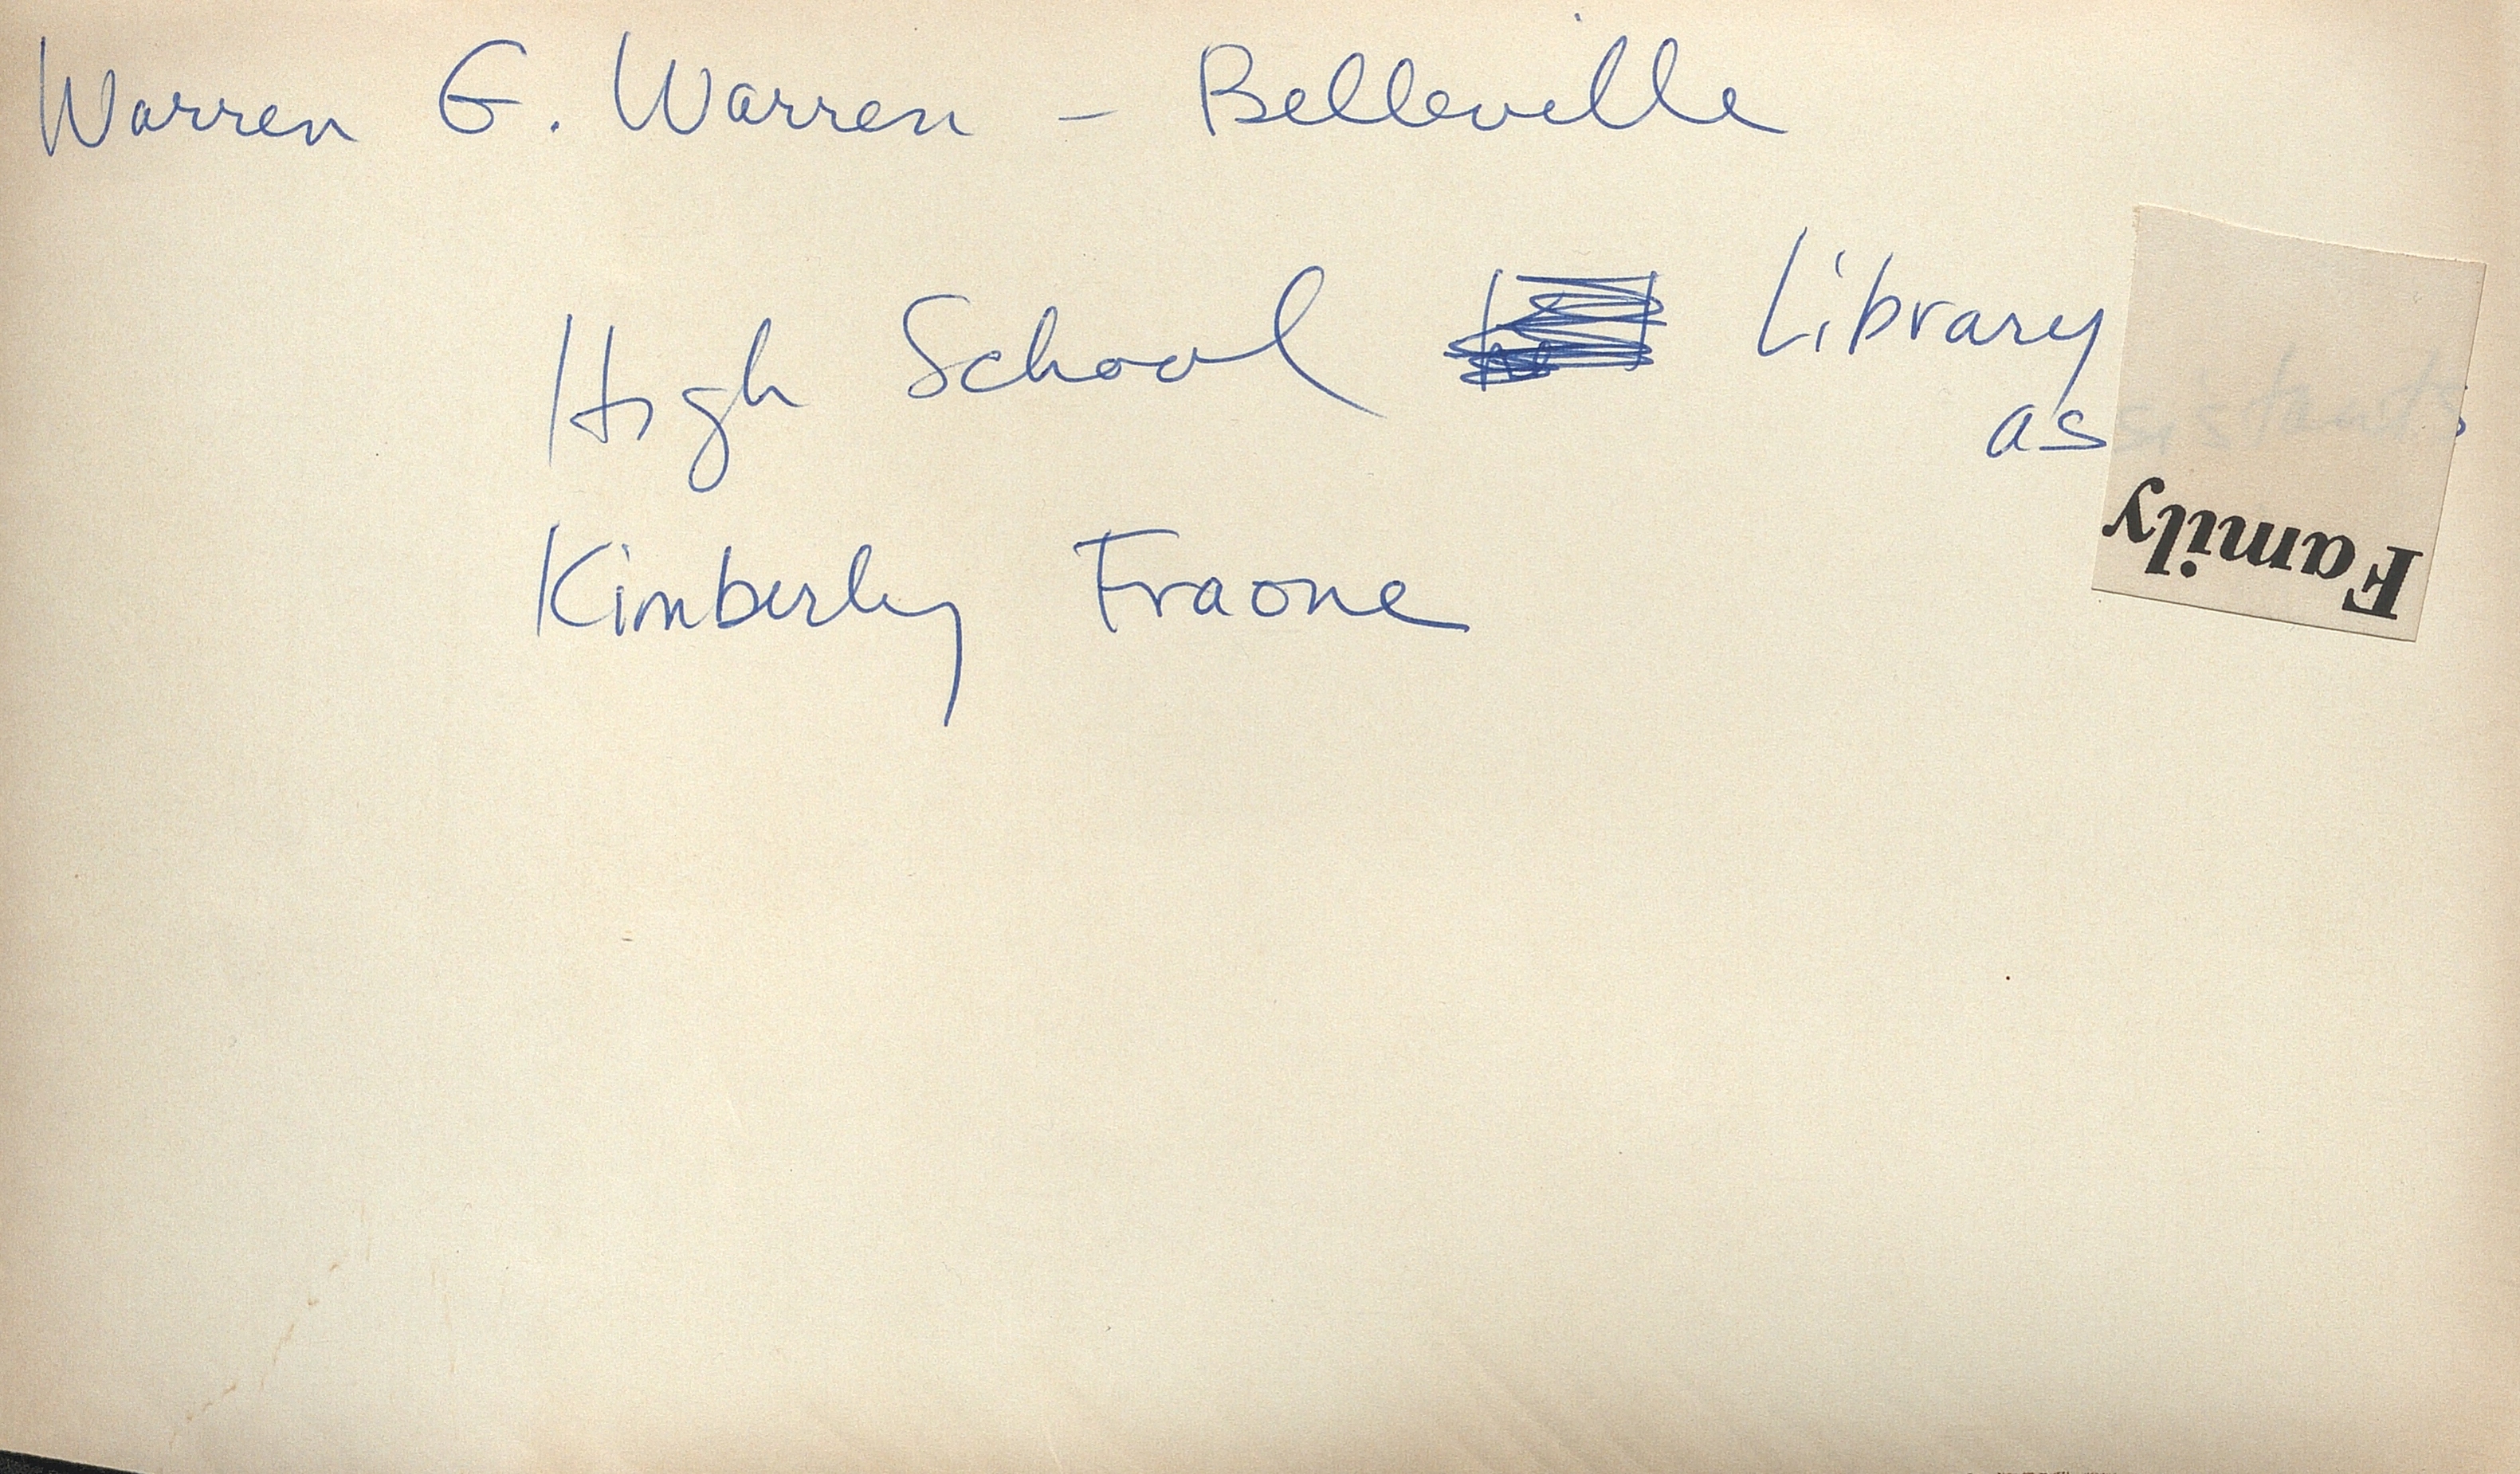 Warren G. Warren - Belleville
High School Library
assistants
Kimberly Fraone
Family